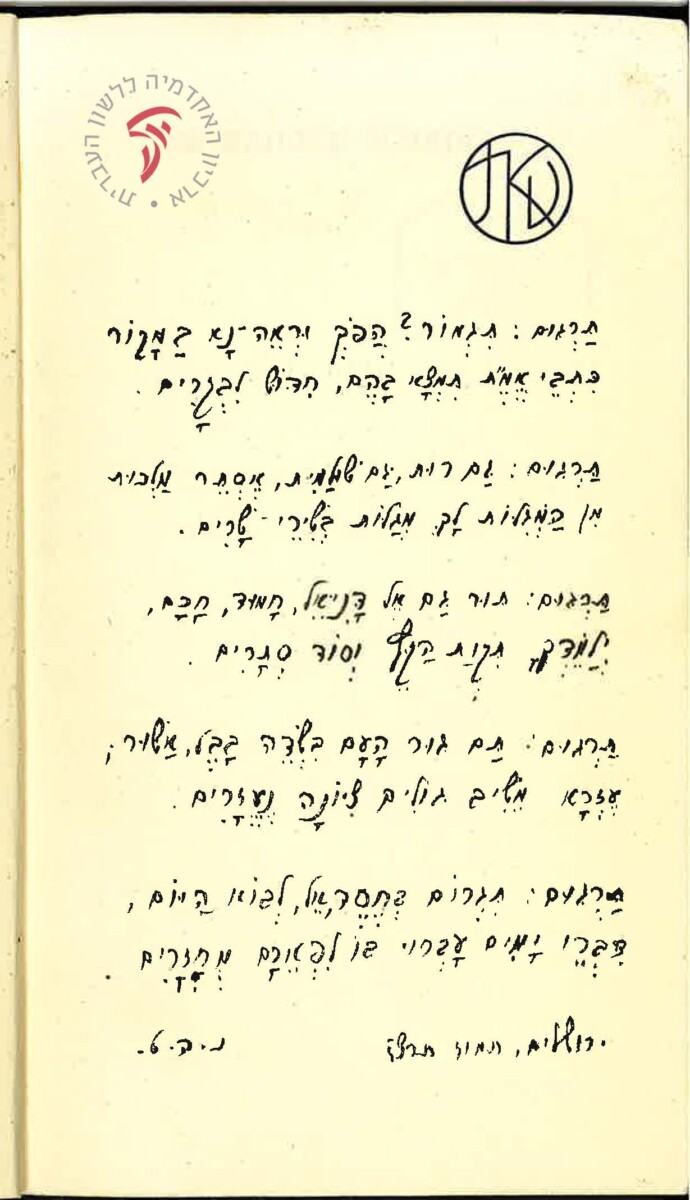 ארכיון האקדמיה ללשון העברית
תַּרְגּוּם: תִּגְמוֹר? הֲפֹךְ וּרְאֵה־נָא בַּמָּקוֹר
כִּתְבֵי אֱמֶ״ת תִּמְצָא בָּהֶם, חִדּוּשׁ לִגְזָרִים.
תַּרְגּוּם: גַּם רוּת, גַּם שֻׁלַּמִּית, אֶסְתֵּר מַלְכוּת
מִן הַמְּגִלּוֹת לָךְ מְגַלּוֹת בְּשִׁירֵי־שָׁרִים.
תַּרְגּוּם: תּוּר גַּם אֶל דָּנִיֵּאל, חָמוּד, חָכָם,
יְלַמֶּדְךָ תִּקְוַת הַקֵּץ וְסוֹד סְתָרִים.
תַּרְגּוּם: תַּם גּוּר הָעָם בִּשְׂדֵה בָּבֶל, אַשּׁוּר;
עֶזְרָא מֵשִׁיב גּוֹלִים צִיּוֹנָה נֶעֱזָרִים.
תַּרְגּוּם: תִּגְרוֹם בְּחֶסֶד אֵל, לְבוֹא הַיּוֹם,
דִּבְרֵי יָמִים עָבְרוּ בּוֹ לִפְאֵרָם מְחֻזָּרִים.
ירושלים, תמוז תרצ״ז
נ. ה. ט.